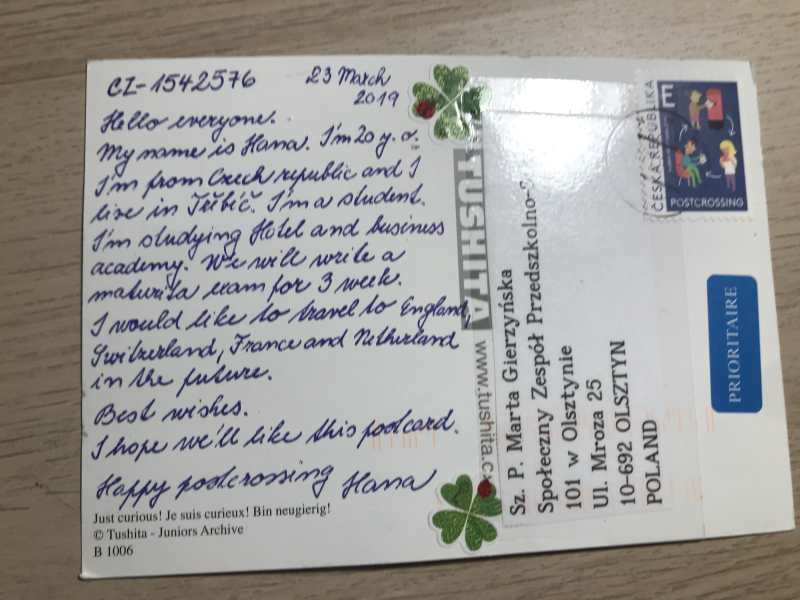 CZ-1542576 23 March
2019
Hello everyone.
My name is Hana. I'm 20 y. o.
I'm from Czech republic and I
live in Třebíč. I'm a student.
I'm studying Hotel and business
academy. We will write a
maturita exam for 3 week.
I would like to travel to England,
Switzerland, France and Netherland
in the future.
Best wishes.
I hope we'll like this postcard.
Happy postcrossing Hana
Just curious! Je suis curieux! Bin neugierig!
© Tushita - Juniors Archive
B 1006
TUSHITA www.tushita.c
Sz. P. Marta Gierzyńska
Społeczny Zespół Przedszkolno-
101 w Olsztynie
Ul. Mroza 25
10-692 OLSZTYN
POLAND
ČESKÁ REPUBLIKA
E
POSTCROSSING
PRIORITAIRE